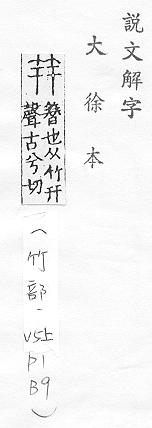 說文解字
大徐本
笄
簪也从竹幵
聲古兮切
(竹部.V5上P1B9)